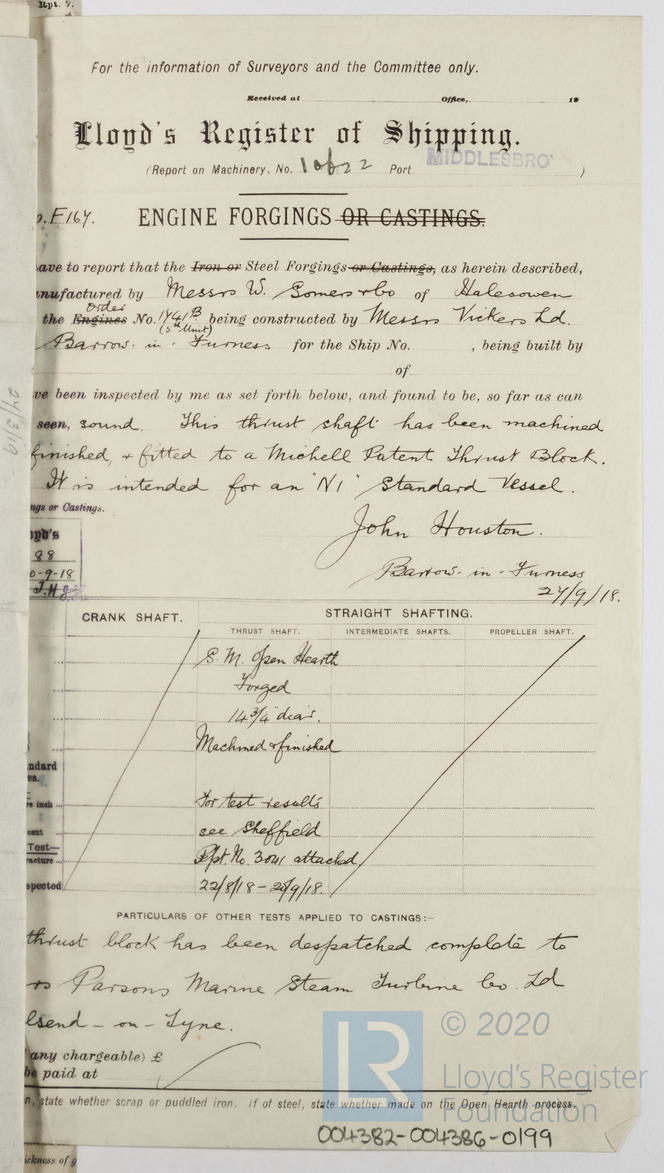 Rpt. 7.
For the information of Surveyors and the Committee only.
Received at Office, 19
Lloyd's Register of Shipping.
(Report on Machinery, No. 10622 Port MIDDLESBRO' )
o. F164. ENGINE FORGINGS OR CASTINGS.
ave to report that the Iron or Steel Forgings or Castings, as herein described,
anufactured by Messrs W. Somers & Co of Halesowen
order
the Engines No. 1741B being constructed by Messrs Vickers Ld.
(5th Unit)
Barrow-in-Furness for the Ship No. , being built by
of
ve been inspected by me as set forth below, and found to be, so far as can
seen, sound. This thrust shaft has been machined
finished, & fitted to a Michell Patent Thrust Block.
It is intended for an 'N1' Standard Vessel.
ngs or Castings.
John Houston.
oyd's
88
0-9-18
J.H
Barrow-in-Furness
27/9/18.
24/3/19
CRANK SHAFT. STRAIGHT SHAFTING.
THRUST SHAFT. INTERMEDIATE SHAFTS. PROPELLER SHAFT.
S. M. Open Hearth
Forged
14 3/4" diar.
Machined & finished
ndard
es.
re inch For test results
cent see Sheffield
Test—
racture Rpt. No. 3041 attached
spected 22/8/18 - 20/9/18.
PARTICULARS OF OTHER TESTS APPLIED TO CASTINGS:—
thrust block has been despatched complete to
rs Parsons Marine Steam Turbine Co. Ld
lsend-on-Tyne.
any chargeable) £
be paid at
n, state whether scrap or puddled iron. If of steel, state whether made on the Open Hearth process.
LR
© 2020
Lloyd's Register
Foundation
004382-004386-0199
ickness of g